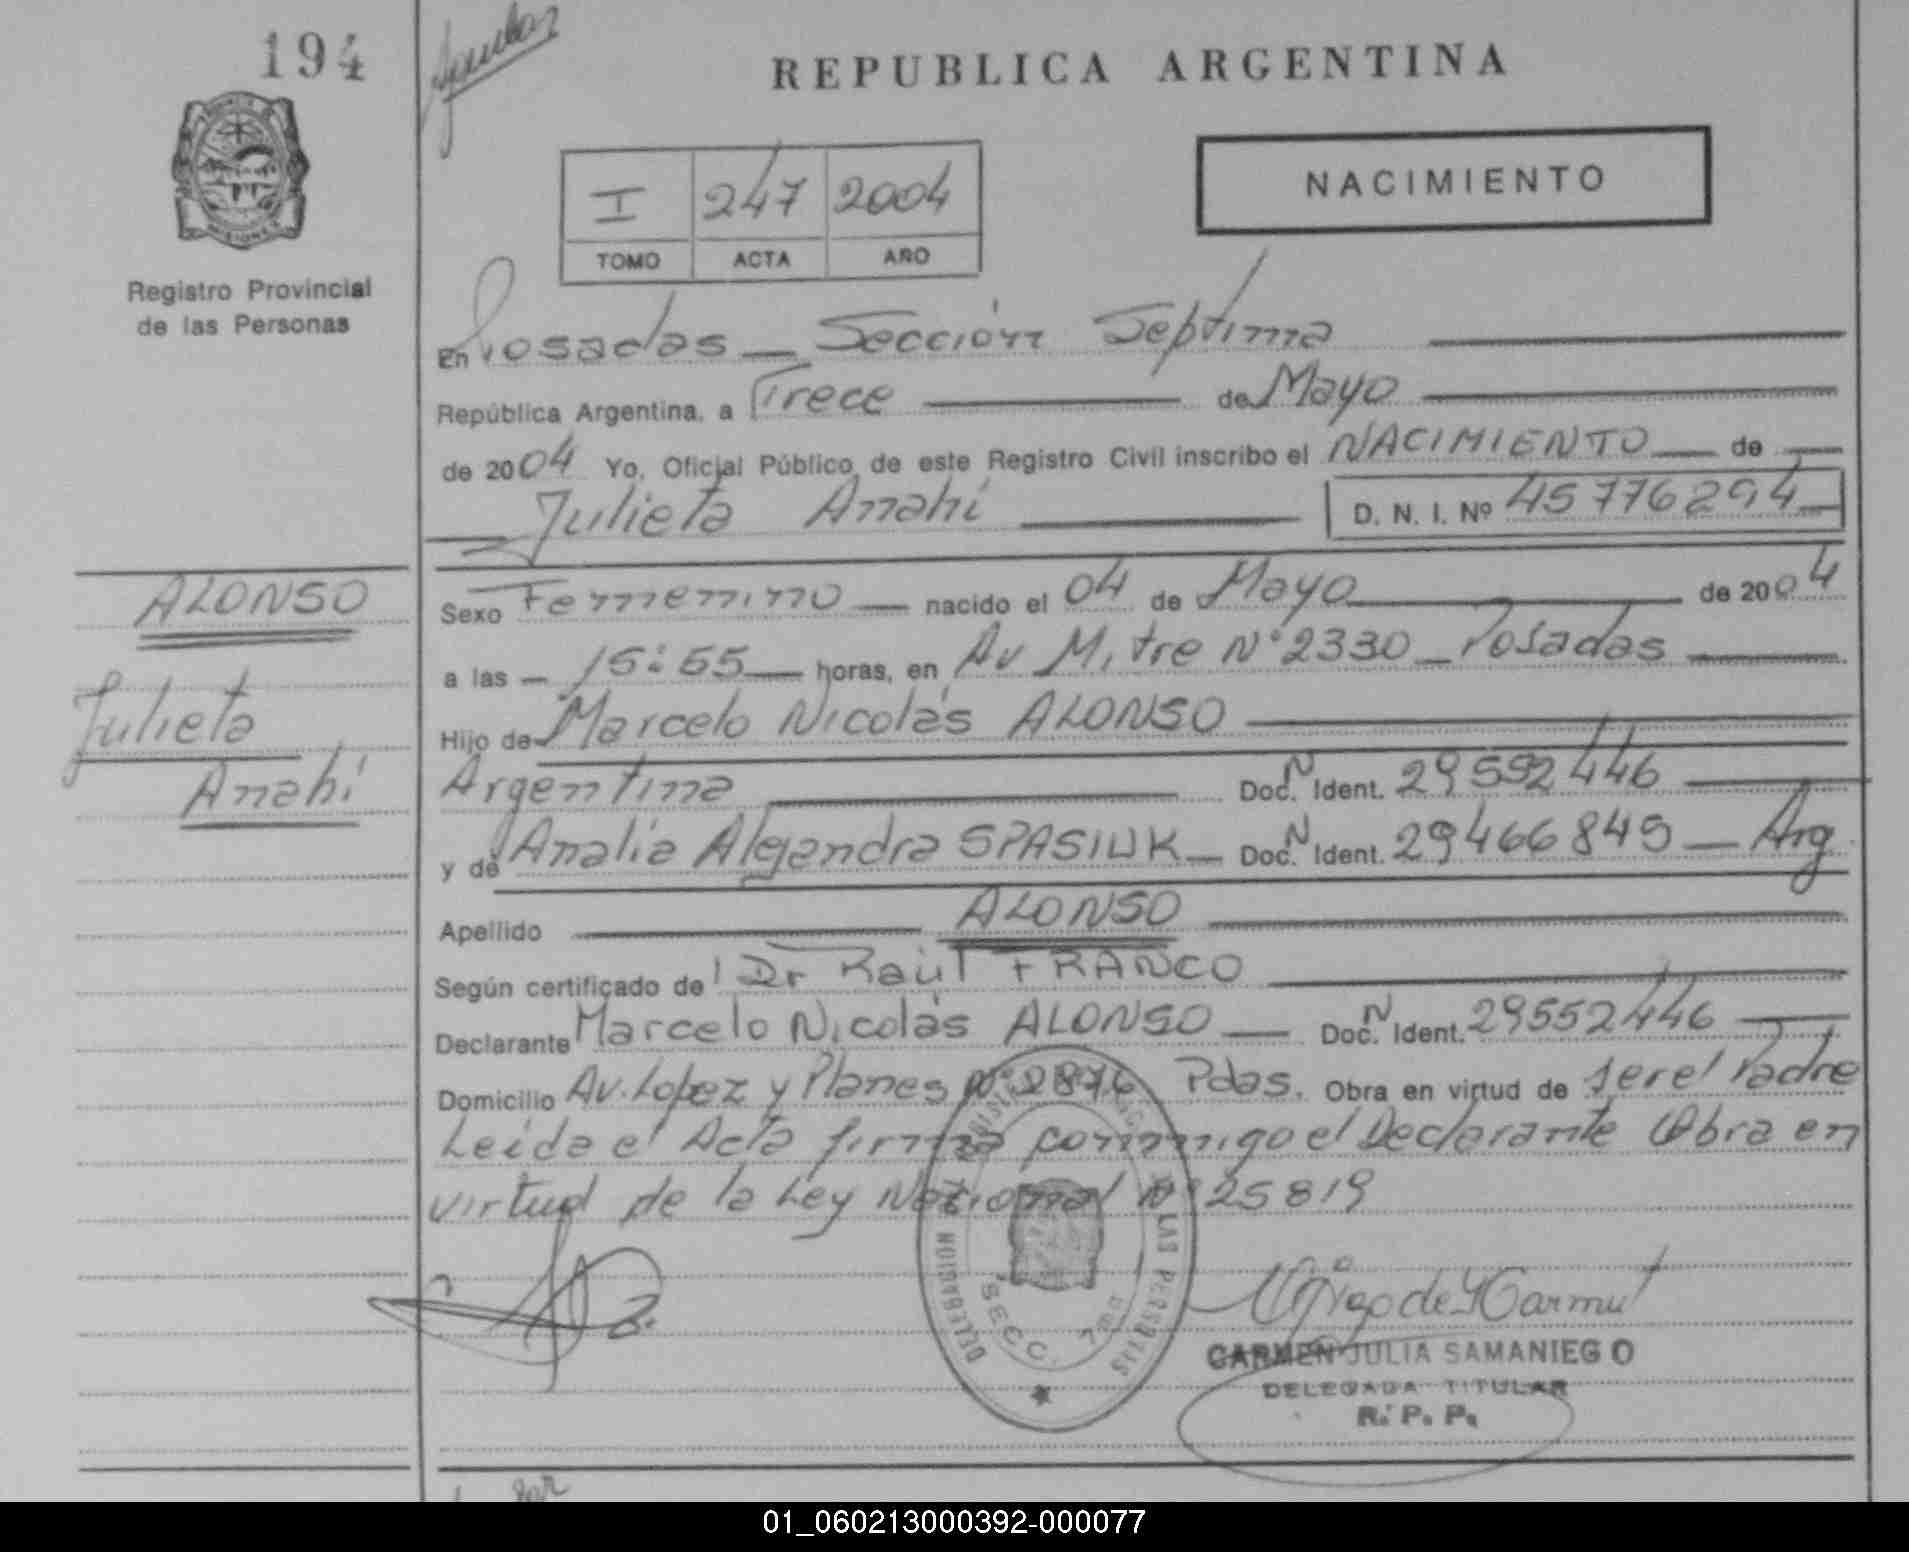 194
REPUBLICA ARGENTINA
I 247 2004
TOMO ACTA AÑO
NACIMIENTO
MISIONES
Registro Provincial
de las Personas
En Posadas — Sección Septima
República Argentina, a Trece de Mayo
de 2004 Yo, Oficial Público de este Registro Civil inscribo el NACIMIENTO de
Julieta Anahi D. N. I. Nº 45776294
ALONSO
Julieta
Anahi
Sexo Femenino nacido el 04 de Mayo de 2004
a las — 15:55 — horas, en Av Mitre Nº 2330 _ Posadas
Hijo de Marcelo Nicolás ALONSO
Argentina Doc. N Ident. 29592446
y de Analia Alejandra SPASIUK — Doc. N Ident. 29466845 — Arg
Apellido ALONSO
Según certificado de Dr Raúl FRANCO
Declarante Marcelo Nicolás ALONSO — Doc. N Ident. 29552446
Domicilio Av. Lopez y Planes Nº 2876 Pdas. Obra en virtud de ser el Padre
Leida el Acta firma conmigo el Declarante Obra en
virtud de la Ley Nacional Nº 25819
DELEGACION LAS PERSONAS
SECC. 7
CARMEN JULIA SAMANIEGO
DELEGADA TITULAR
R. P. P.
01_060213000392-000077